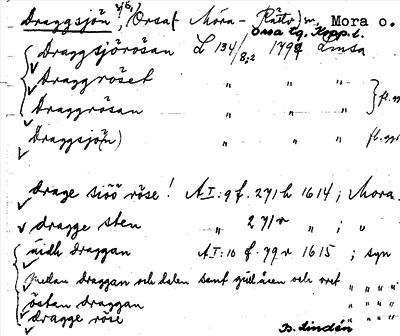 Draggsjön, Orsa (Mora - Rättv) m, Mora o.
Orsa tg. Kopp. l.
Draggsjörösan L 134/8:2 1794 Lmsa
Draggröset " " "
Draggrösan " " "
Draggsjö(n) " " "
drage siöö röse! A I:9 f. 271 h 1614; Mora
dragge sten " 271 v " ; "
uidh draggan A I:10 f. 79 v 1615 ; syn
mellan draggan och dalen samt gullåsen och " " "
östan draggan " " "
dragge röse " " "
B. Lindén